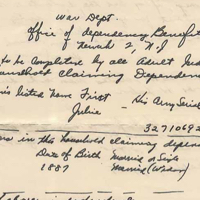 War Dept.
Office of dependency Benefit
Newark 2, N.J
to be completed by all Adult Ind
Household Claiming Dependen
listed Have First
His Army Serial
Julie
3271069
in this household claiming depende
Date of Birth Married or Single
1887 Married (Widow)